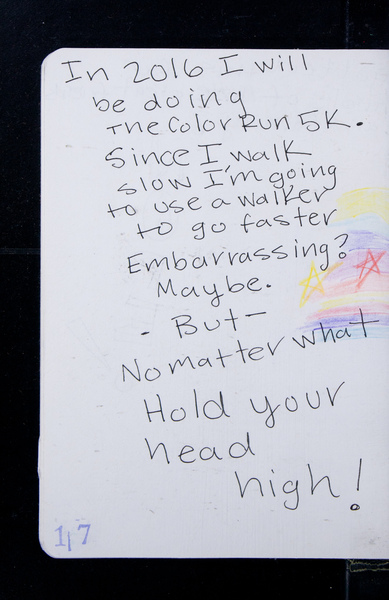 In 2016 I will
be doing
The Color Run 5K.
Since I walk
slow I'm going
to use a walker
to go faster
Embarrassing?
Maybe.
- But -
No matter what
Hold your
head
high!
17